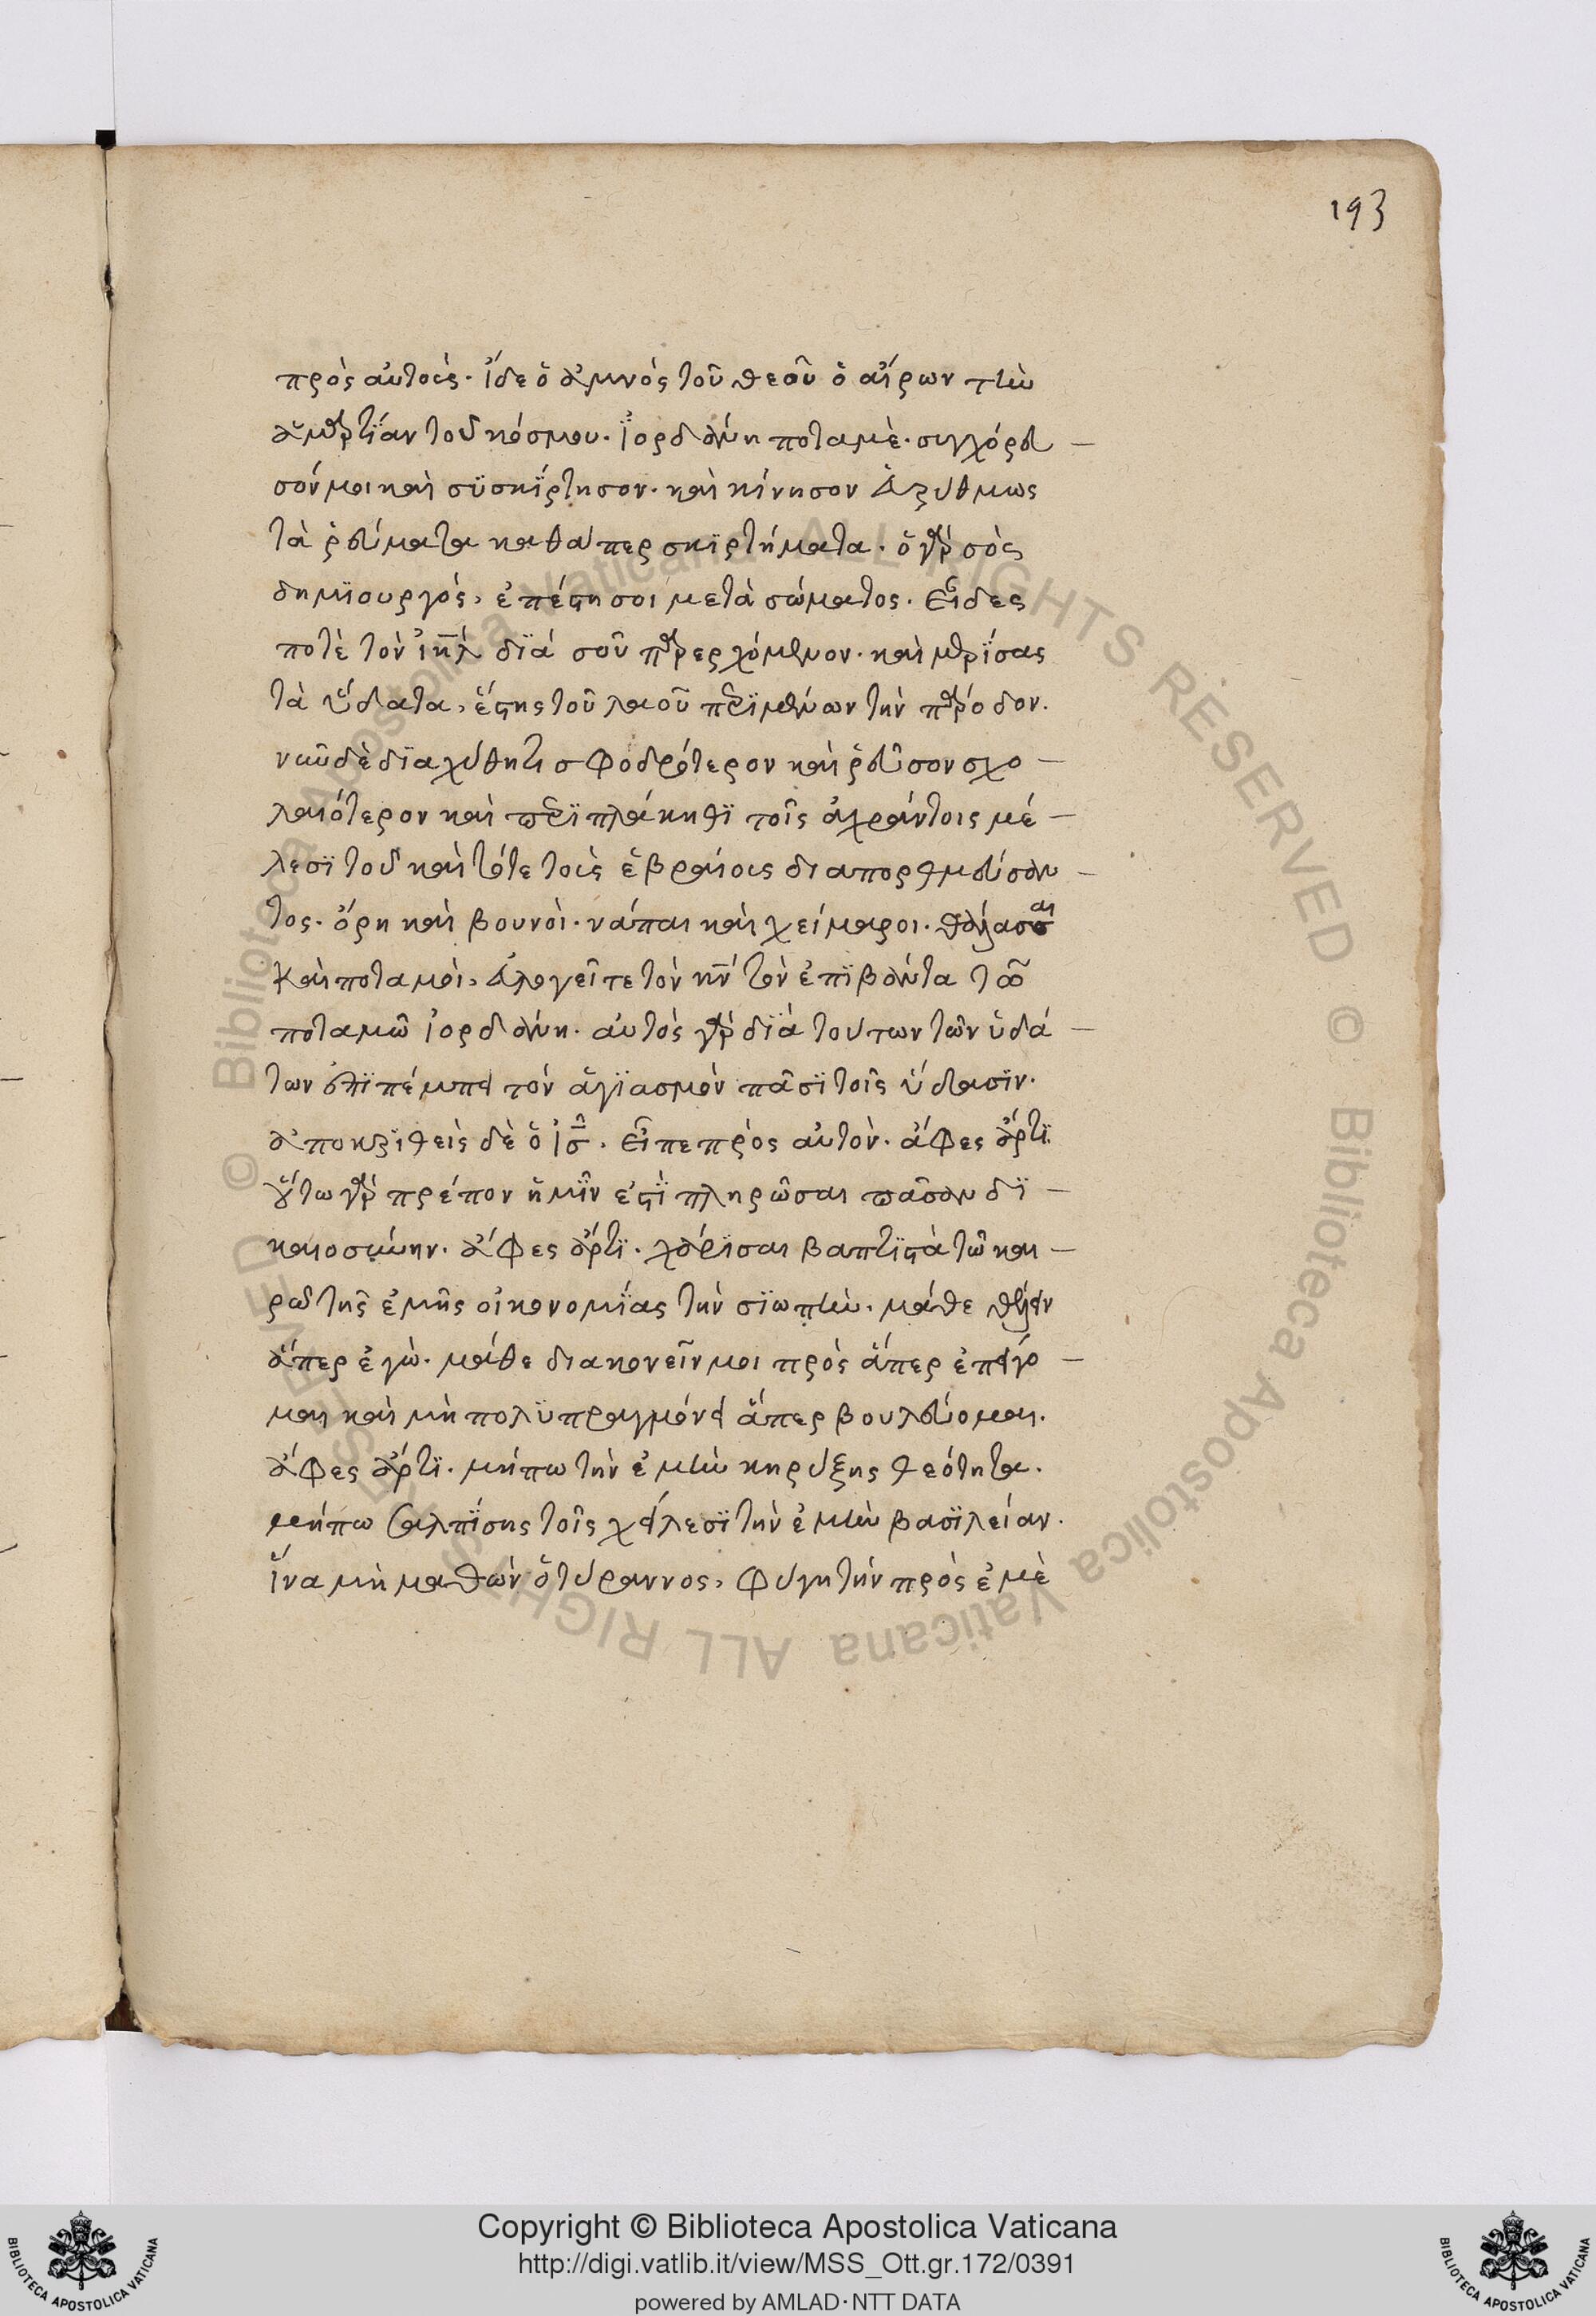 193
πρὸς αὐτοὺς· ἴδε ὁ ἀμνὸς τοῦ θεοῦ ὁ αἴρων τὴν
ἁμαρτίαν τοῦ κόσμου· ἰορδάνη ποταμὲ· συγχόρευ-
σόν μοι καὶ συσκίρτησον· καὶ κίνησον εὐρύθμως
τὰ ῥεύματα καθάπερ σκιρτήματα· ὁ γὰρ σὸς
δημιουργός, ἐπέστη σοι μετὰ σώματος· εἶδες
ποτὲ τὸν ἰηλ διά σου παρερχόμενον· καὶ μερίσας
τὰ ὕδατα, ἔστης τοῦ λαοῦ περιμένων τὴν πάροδον·
νῦν δὲ διαχύθητι σφοδρότερον καὶ ῥεῦσον σχο-
λαιότερον καὶ περιπλάκηθι τοῖς ἀχράντοις μέ-
λεσι τοῦ καὶ τότε τοὺς ἑβραίους διαπορθμεύσαν-
τος· ὄρη καὶ βουνοὶ· νάπαι καὶ χείμαροι· θάλασσαι
καὶ ποταμοὶ, εὐλογεῖτε τὸν κν τὸν ἐπιβάντα τῶ
ποταμῶ ἰορδάνη· αὐτὸς γὰρ διὰ τούτων τῶν ὑδά-
των ἐπιπέμπει τὸν ἁγιασμὸν πᾶσι τοῖς ὕδασιν·
ἀποκριθεὶς δὲ ὁ ις, εἶπε πρὸς αὐτὸν· ἄφες ἄρτι·
οὕτω γὰρ πρέπον ἡμῖν ἐστὶ πληρῶσαι πᾶσαν δι-
καιοσύνην· ἄφες ἄρτι· χάρισαι βαπτιστὰ τῶ και-
ρῶ τῆς ἐμῆς οἰκονομίας τὴν σιωπὴν· μάθε θέλειν
ἅπερ ἐγὼ· μάθε διακονεῖν μοι πρὸς ἅπερ ἐπείγο-
μαι καὶ μὴ πολυπραγμόνει ἅπερ βουλεύομαι·
ἄφες ἄρτι· μήπω τὴν ἐμὴν κηρύξης θεότητα·
μήπω σαλπίσης τοῖς χείλεσι τὴν ἐμὴν βασιλείαν·
ἵνα μὴ μαθὼν ὁ τύραννος, φύγη τὴν πρὸς ἐμὲ
Copyright © Biblioteca Apostolica Vaticana
http://digi.vatlib.it/view/MSS_Ott.gr.172/0391
powered by AMLAD·NTT DATA
BIBLIOTECA APOSTOLICA VATICANA
BIBLIOTECA APOSTOLICA VATICANA
© Biblioteca Apostolica Vaticana ALL RIGHTS RESERVED
© Biblioteca Apostolica Vaticana ALL RIGHTS RESERVED